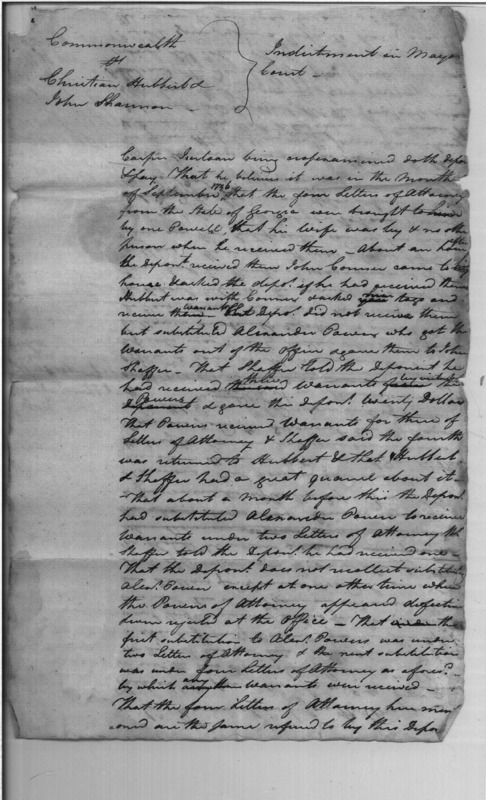 Commonwealth
vs
Christian Hubbert &
John Shannon
Indictment in Mayor
Court
being crossexamined doth depo
& say That he believes it was in the Month
of September 1786 that the four Letters of Attorney
from the State of Georgia were brought to him
by one Powell, that his wife was by & no other
person when he received them - About an hour after
the depont. received them John Connor came to his
house & asked the depot. if he had received them
Hubbert was with Connor & asked to go and
receive the warrants Depot. did not receive them
but substituted Alexander Power who got the
Warrants out of the Office & gave them to John
Shaffer - That Shaffer told the Deponent he
had received three Warrants
Powers & gave this Depont. twenty Dollars
That Powers received Warrants for three of
Letters of Attorney & Sheffer said the fourth
was returned to Hubbert & that Hubbert
& Sheffer had a great quarrel about it -
That about a Month before this the Depont.
had substituted Alexander Power to receive
Warrants under two Letters of Attorney &
Sheffer told the Depont. he had received one -
That the Depont. does not recollect substituting
Alexr. Power except at one other time when
the Powers of Attorney appeared defective
& were rejected at the Office - That the
first substitution to Alexr. Powers was under
two Letters of Attorney & the next substitution
was under four Letters of Attorney as aforesd. -
by which any Warrants were received -
That the four Letters of Attorney here men
oned are the same referred to by this Depo